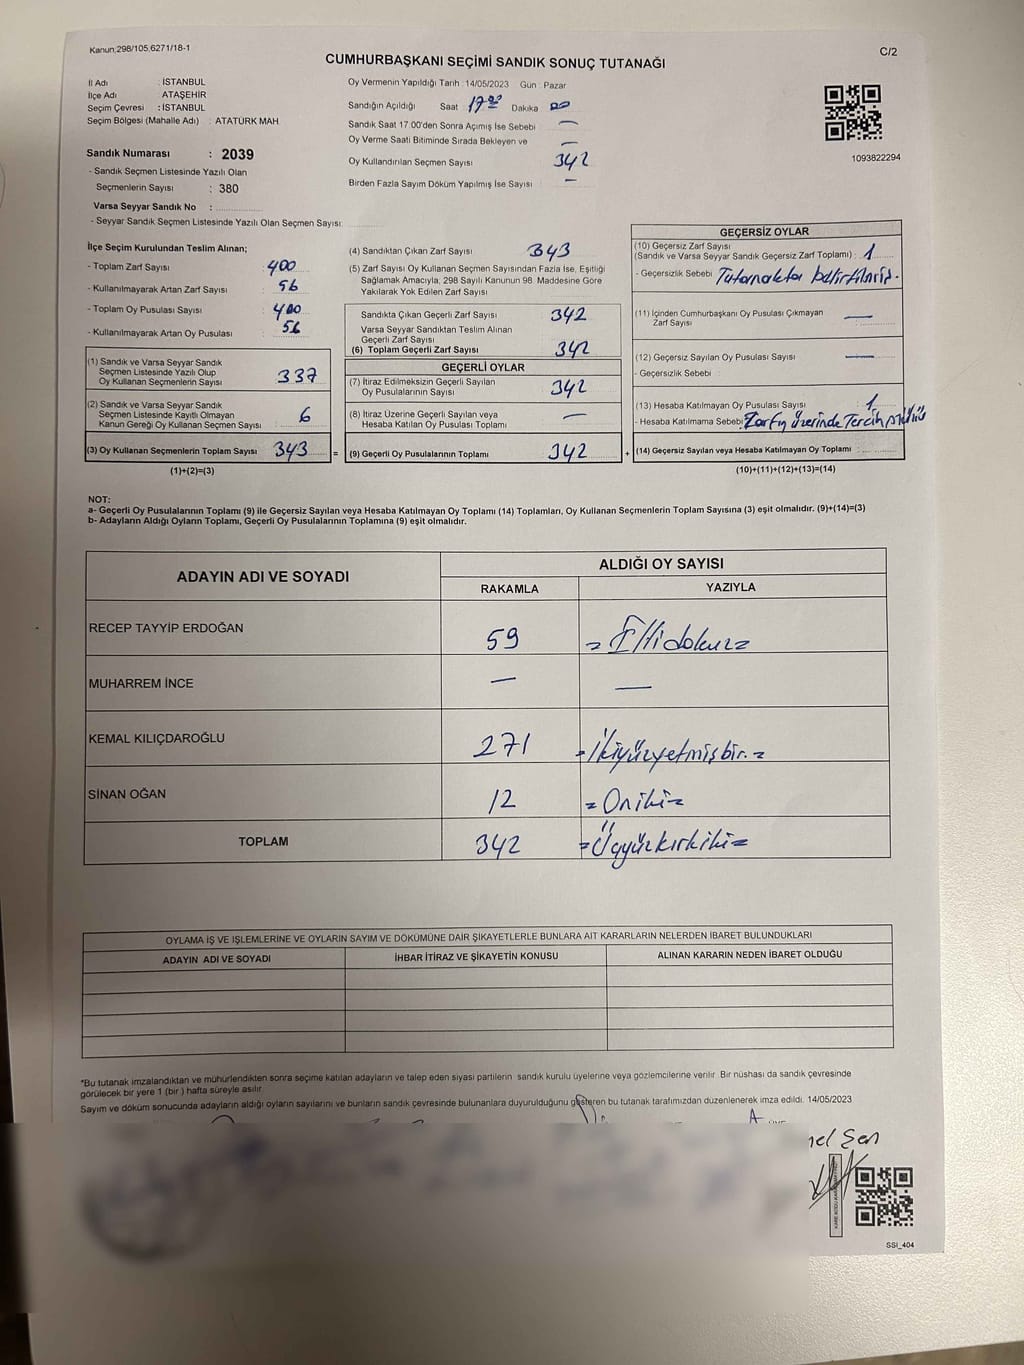 Kanun;298/105,6271/18-1
C/2
CUMHURBAŞKANI SEÇİMİ SANDIK SONUÇ TUTANAĞI
İl Adı : İSTANBUL
İlçe Adı ATAŞEHİR
Seçim Çevresi : İSTANBUL
Seçim Bölgesi (Mahalle Adı) : ATATÜRK MAH.
Sandık Numarası : 2039
- Sandık Seçmen Listesinde Yazılı Olan
Seçmenlerin Sayısı : 380
Varsa Seyyar Sandık No :
- Seyyar Sandık Seçmen Listesinde Yazılı Olan Seçmen Sayısı:
Oy Vermenin Yapıldığı Tarih : 14/05/2023 Gün : Pazar
Sandığın Açıldığı Saat 17.00 Dakika 00
Sandık Saat 17.00'den Sonra Açımış İse Sebebi —
Oy Verme Saati Bitiminde Sırada Bekleyen ve —
Oy Kullandırılan Seçmen Sayısı 342
Birden Fazla Sayım Döküm Yapılmış İse Sayısı —
1093822294
İlçe Seçim Kurulundan Teslim Alınan;
- Toplam Zarf Sayısı : 400
- Kullanılmayarak Artan Zarf Sayısı : 56
- Toplam Oy Pusulası Sayısı : 400
- Kullanılmayarak Artan Oy Pusulası : 56
(1) Sandık ve Varsa Seyyar Sandık
Seçmen Listesinde Yazılı Olup
Oy Kullanan Seçmenlerin Sayısı 337
(2) Sandık ve Varsa Seyyar Sandık
Seçmen Listesinde Kayıtlı Olmayan
Kanun Gereği Oy Kullanan Seçmen Sayısı 6
(3) Oy Kullanan Seçmenlerin Toplam Sayısı 343 =
(1)+(2)=(3)
(4) Sandıktan Çıkan Zarf Sayısı 343
(5) Zarf Sayısı Oy Kullanan Seçmen Sayısından Fazla İse, Eşitliği
Sağlamak Amacıyla, 298 Sayılı Kanunun 98. Maddesine Göre
Yakılarak Yok Edilen Zarf Sayısı
Sandıkta Çıkan Geçerli Zarf Sayısı 342
Varsa Seyyar Sandıktan Teslim Alınan
Geçerli Zarf Sayısı
(6) Toplam Geçerli Zarf Sayısı 342
GEÇERLİ OYLAR
(7) İtiraz Edilmeksizin Geçerli Sayılan
Oy Pusulalarının Sayısı 342
(8) İtiraz Üzerine Geçerli Sayılan veya
Hesaba Katılan Oy Pusulası Toplamı —
(9) Geçerli Oy Pusulalarının Toplamı 342 +
GEÇERSİZ OYLAR
(10) Geçersiz Zarf Sayısı
(Sandık ve Varsa Seyyar Sandık Geçersiz Zarf Toplamı) : 1
- Geçersizlik Sebebi Tutanakta belirtilmiş.
(11) İçinden Cumhurbaşkanı Oy Pusulası Çıkmayan
Zarf Sayısı —
(12) Geçersiz Sayılan Oy Pusulası Sayısı —
- Geçersizlik Sebebi
(13) Hesaba Katılmayan Oy Pusulası Sayısı : 1
- Hesaba Katılmama Sebebi: Zarfın üzerinde Tercih
(14) Geçersiz Sayılan veya Hesaba Katılmayan Oy Toplamı :
(10)+(11)+(12)+(13)=(14)
NOT:
a- Geçerli Oy Pusulalarının Toplamı (9) ile Geçersiz Sayılan veya Hesaba Katılmayan Oy Toplamı (14) Toplamları, Oy Kullanan Seçmenlerin Toplam Sayısına (3) eşit olmalıdır. (9)+(14)=(3)
b- Adayların Aldığı Oyların Toplamı, Geçerli Oy Pusulalarının Toplamına (9) eşit olmalıdır.
ADAYIN ADI VE SOYADI
ALDIĞI OY SAYISI
RAKAMLA YAZIYLA
RECEP TAYYİP ERDOĞAN 59 = Ellidokuz =
MUHARREM İNCE — —
KEMAL KILIÇDAROĞLU 271 = İkiyüzyetmişbir. =
SİNAN OĞAN 12 = Oniki =
TOPLAM 342 = Üçyüzkırkiki =
OYLAMA İŞ VE İŞLEMLERİNE VE OYLARIN SAYIM VE DÖKÜMÜNE DAİR ŞİKAYETLERLE BUNLARA AİT KARARLARIN NELERDEN İBARET BULUNDUKLARI
ADAYIN ADI VE SOYADI İHBAR İTİRAZ VE ŞİKAYETİN KONUSU ALINAN KARARIN NEDEN İBARET OLDUĞU
*Bu tutanak imzalandıktan ve mühürlendikten sonra seçime katılan adayların ve talep eden siyasi partilerin sandık kurulu üyelerine veya gözlemcilerine verilir. Bir nüshası da sandık çevresinde
görülecek bir yere 1 (bir ) hafta süreyle asılır.
Sayım ve döküm sonucunda adayların aldığı oyların sayılarını ve bunların sandık çevresinde bulunanlara duyurulduğunu gösteren bu tutanak tarafımızdan düzenlenerek imza edildi. 14/05/2023
nel Şen
SSI_404